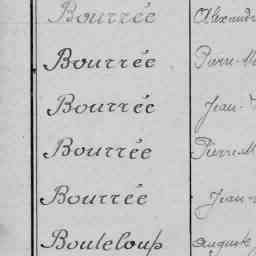 Bourrée Alexandr
Bourrée Pierre-M
Bourrée Jean-
Bourrée Pierre-M
Bourrée Jean-
Bouteloup Auguste